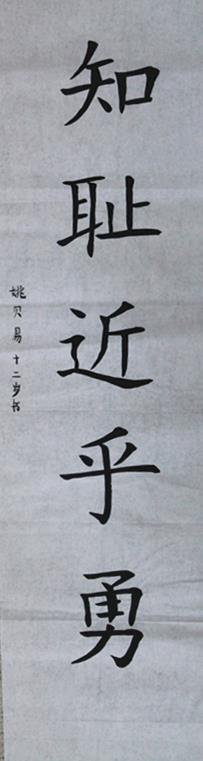 知耻近乎勇
姚贝易十二岁书